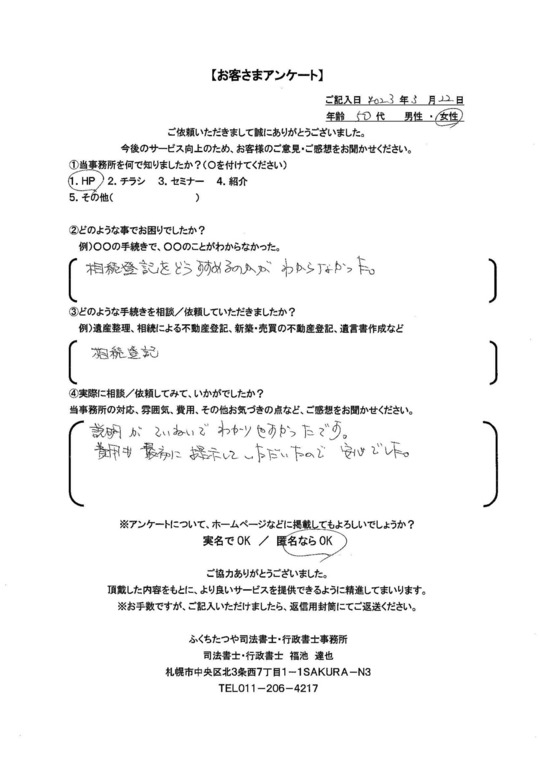 【お客さまアンケート】
ご記入日 2023 年 3 月 22 日
年齢 50 代 男性 ・ 女性
ご依頼いただきまして誠にありがとうございました。
今後のサービス向上のため、お客様のご意見・ご感想をお聞かせください。
①当事務所を何で知りましたか？(○を付けてください)
1. HP 2. チラシ 3. セミナー 4. 紹介
5. その他( )
②どのような事でお困りでしたか？
例)○○の手続きで、○○のことがわからなかった。
相続登記をどうすすめるのかが わからなかった。
③どのような手続きを相談／依頼していただきましたか？
例)遺産整理、相続による不動産登記、新築・売買の不動産登記、遺言書作成など
相続登記
④実際に相談／依頼してみて、いかがでしたか？
当事務所の対応、雰囲気、費用、その他お気づきの点など、ご感想をお聞かせください。
説明が ていねいで わかりやすかったです。
費用も 最初に 提示して いただいたので 安心でした。
※アンケートについて、ホームページなどに掲載してもよろしいでしょうか？
実名でOK ／ 匿名ならOK
ご協力ありがとうございました。
頂戴した内容をもとに、より良いサービスを提供できるように精進してまいります。
※お手数ですが、ご記入いただけましたら、返信用封筒にてご返送ください。
ふくちたつや司法書士・行政書士事務所
司法書士・行政書士 福池 達也
札幌市中央区北3条西7丁目1－1SAKURA－N3
TEL011－206－4217